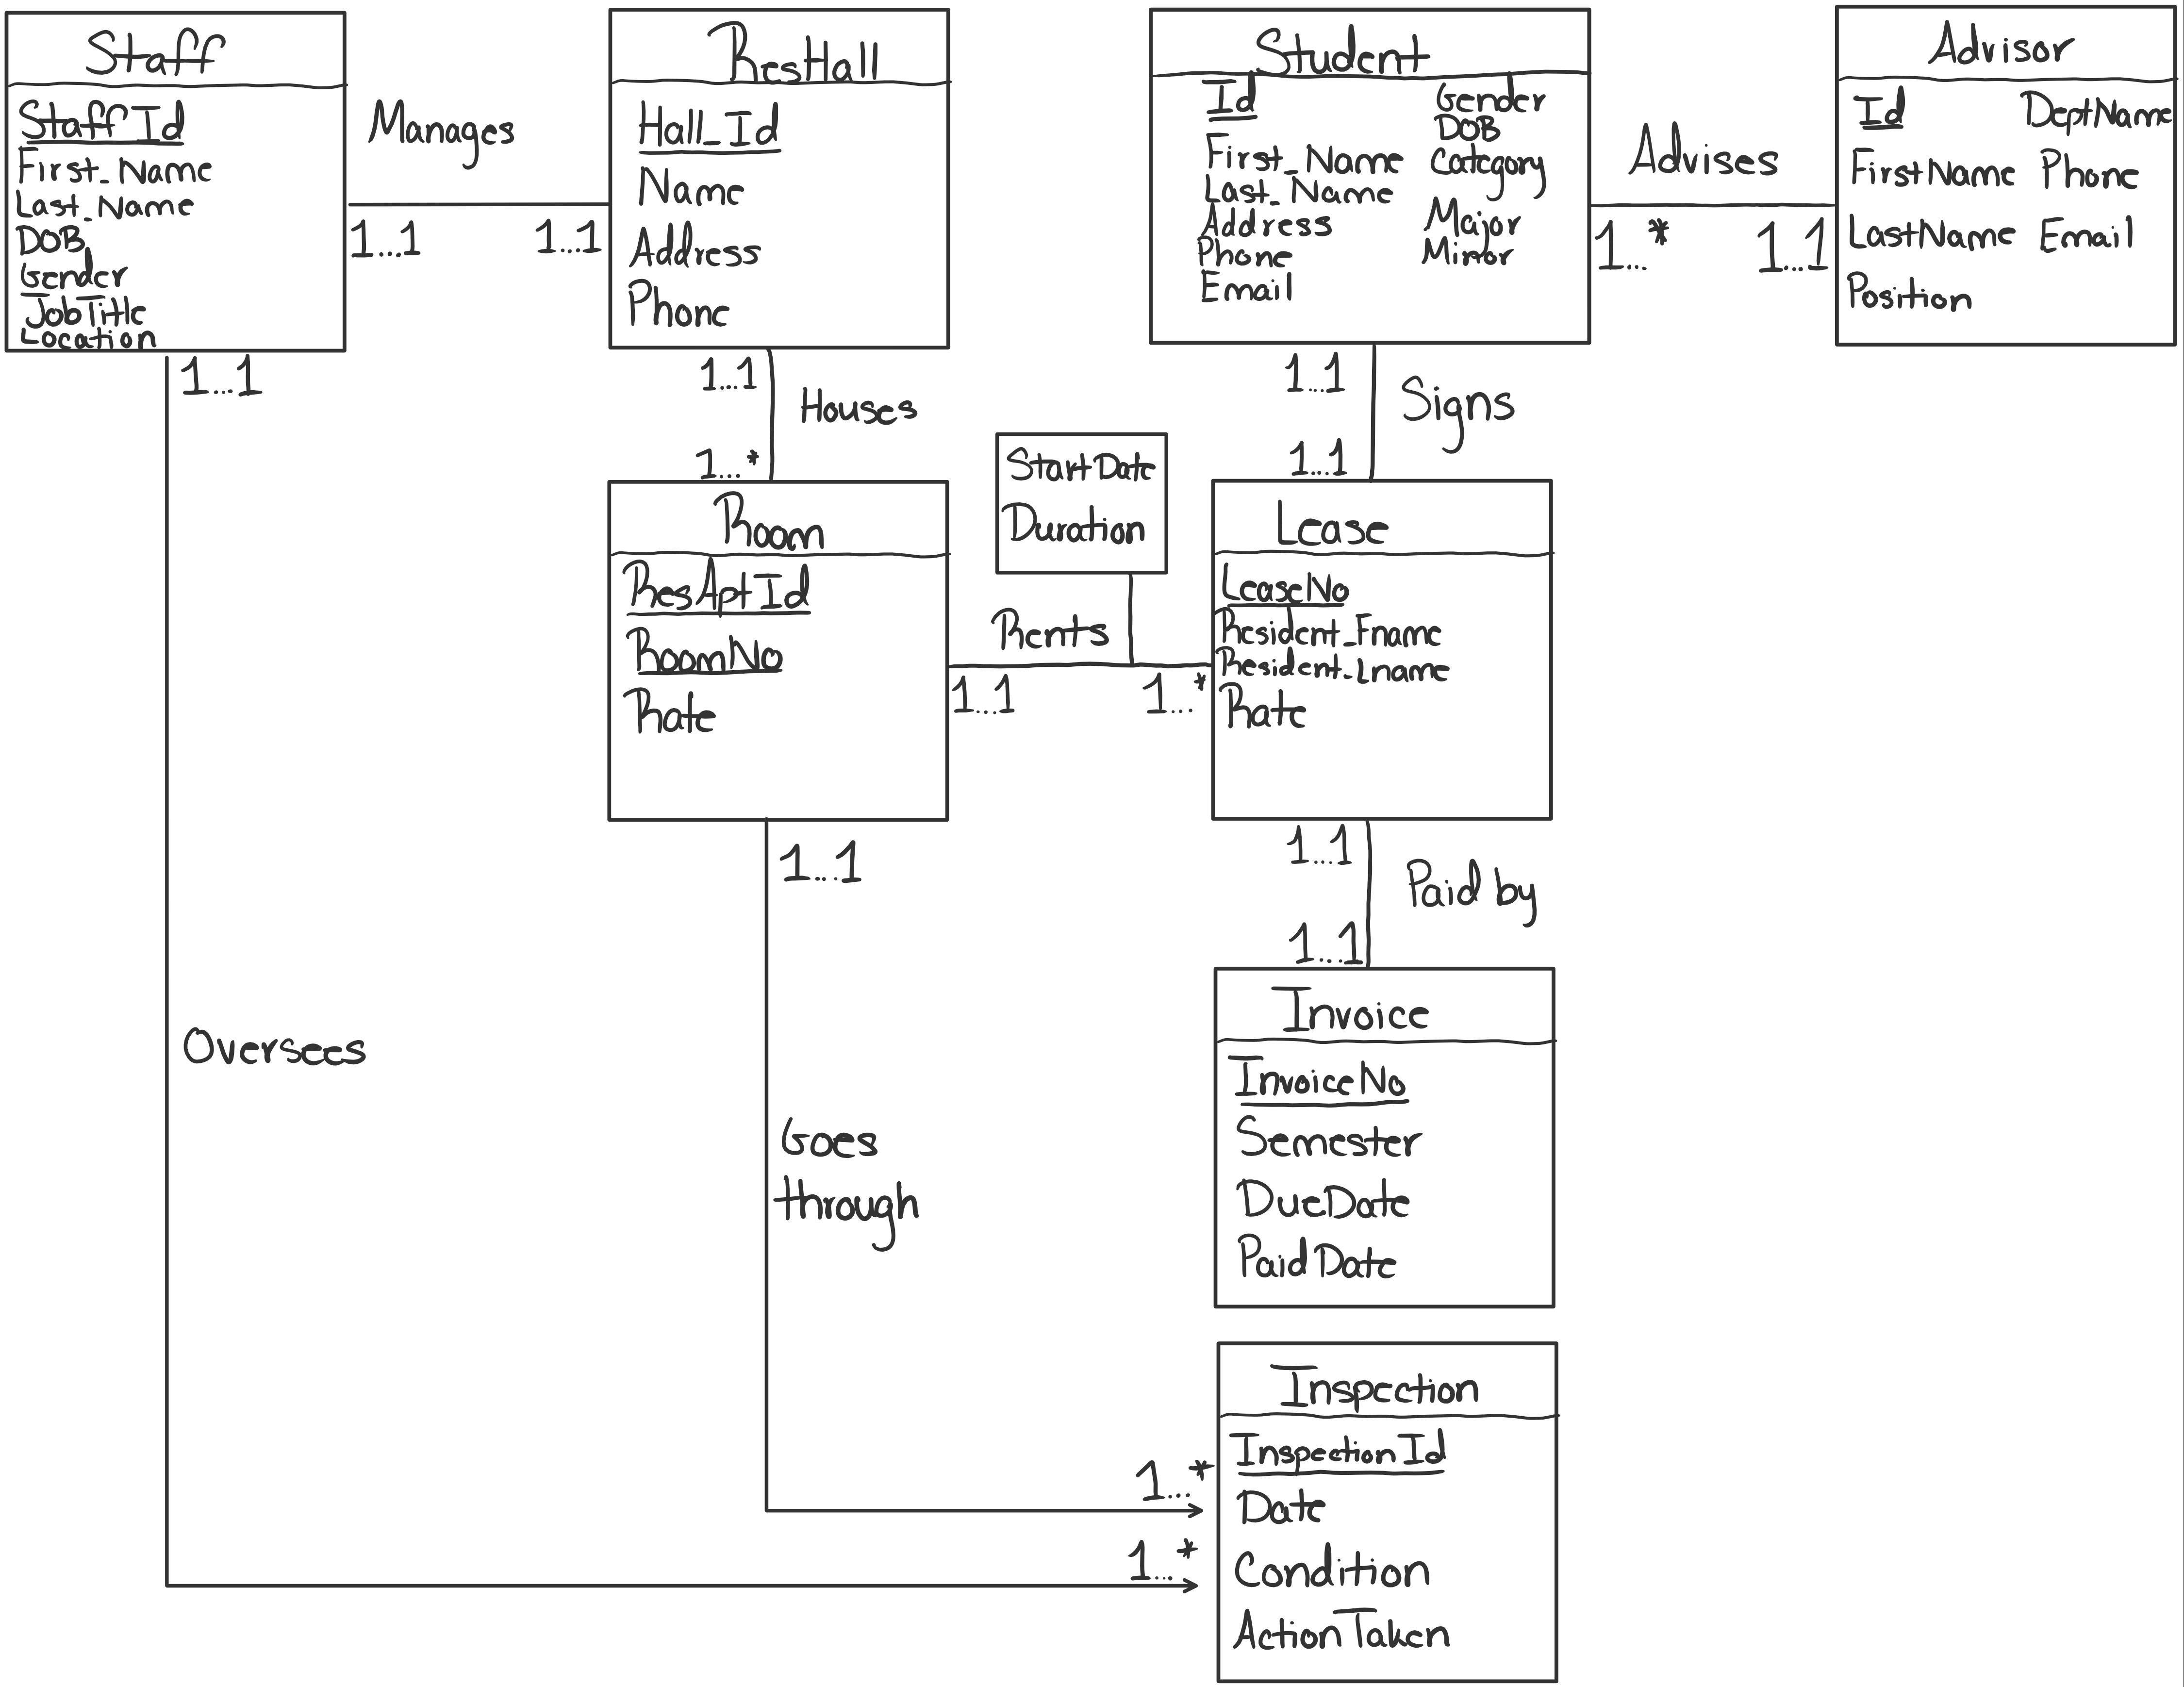 Staff
Staff Id
First_Name
Last_Name
DoB
Gender
JobTitle
Location
1...1
Manages
1...1
1...1
ResHall
Hall_Id
Name
Address
Phone
1...1
Houses
1...*
Student
Id
First_Name
Last_Name
Address
Phone
Email
Gender
DOB
Category
Major
Minor
Advises
1...*
1...1
Advisor
Id
FirstName
LastName
Position
DeptName
Phone
Email
1...1
Signs
1...1
Room
ResAptId
RoomNo
Rate
StartDate
Duration
Rents
1...1
1...*
Lease
LeaseNo
Resident_Fname
Resident_Lname
Rate
1...1
1...1
Paid by
1...1
Invoice
InvoiceNo
Semester
DueDate
PaidDate
Oversees
Goes
through
1...*
1...*
Inspection
Inspection Id
Date
Condition
ActionTaken